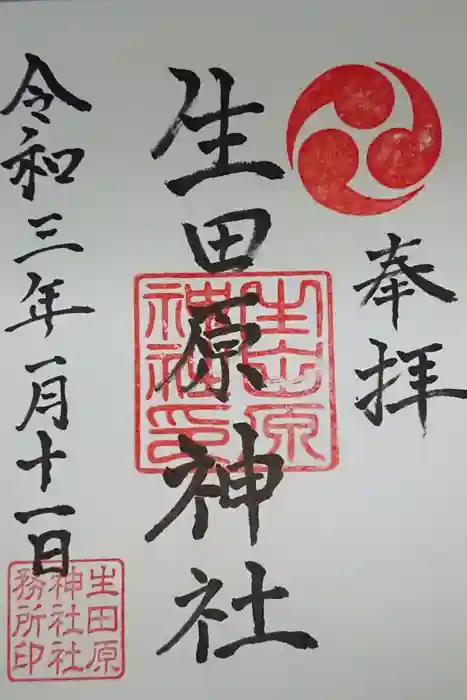 奉拝
生田原神社
生田原
神社印
令和三年一月十一日
生田原
神社社
務所印